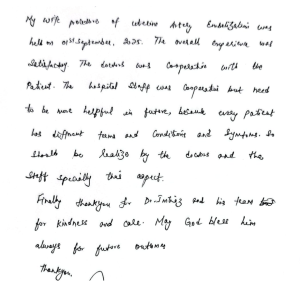 My wife procedure of uterine Artery Embolization was
held on 01st September, 2025. The overall Experience was
Satisfactory The doctors was Cooperative with the
Patient. The hospital Staff was Cooperative but need
to be more helpful in future, because every patient
has different terms and Conditions and Symptoms. So
should be realize by the doctors and the
Staff specially this aspect.
Finally thankyou for Dr. Imtiaz and his team
for kindness and care. May God bless him
always for future outcomes
Thankyou.